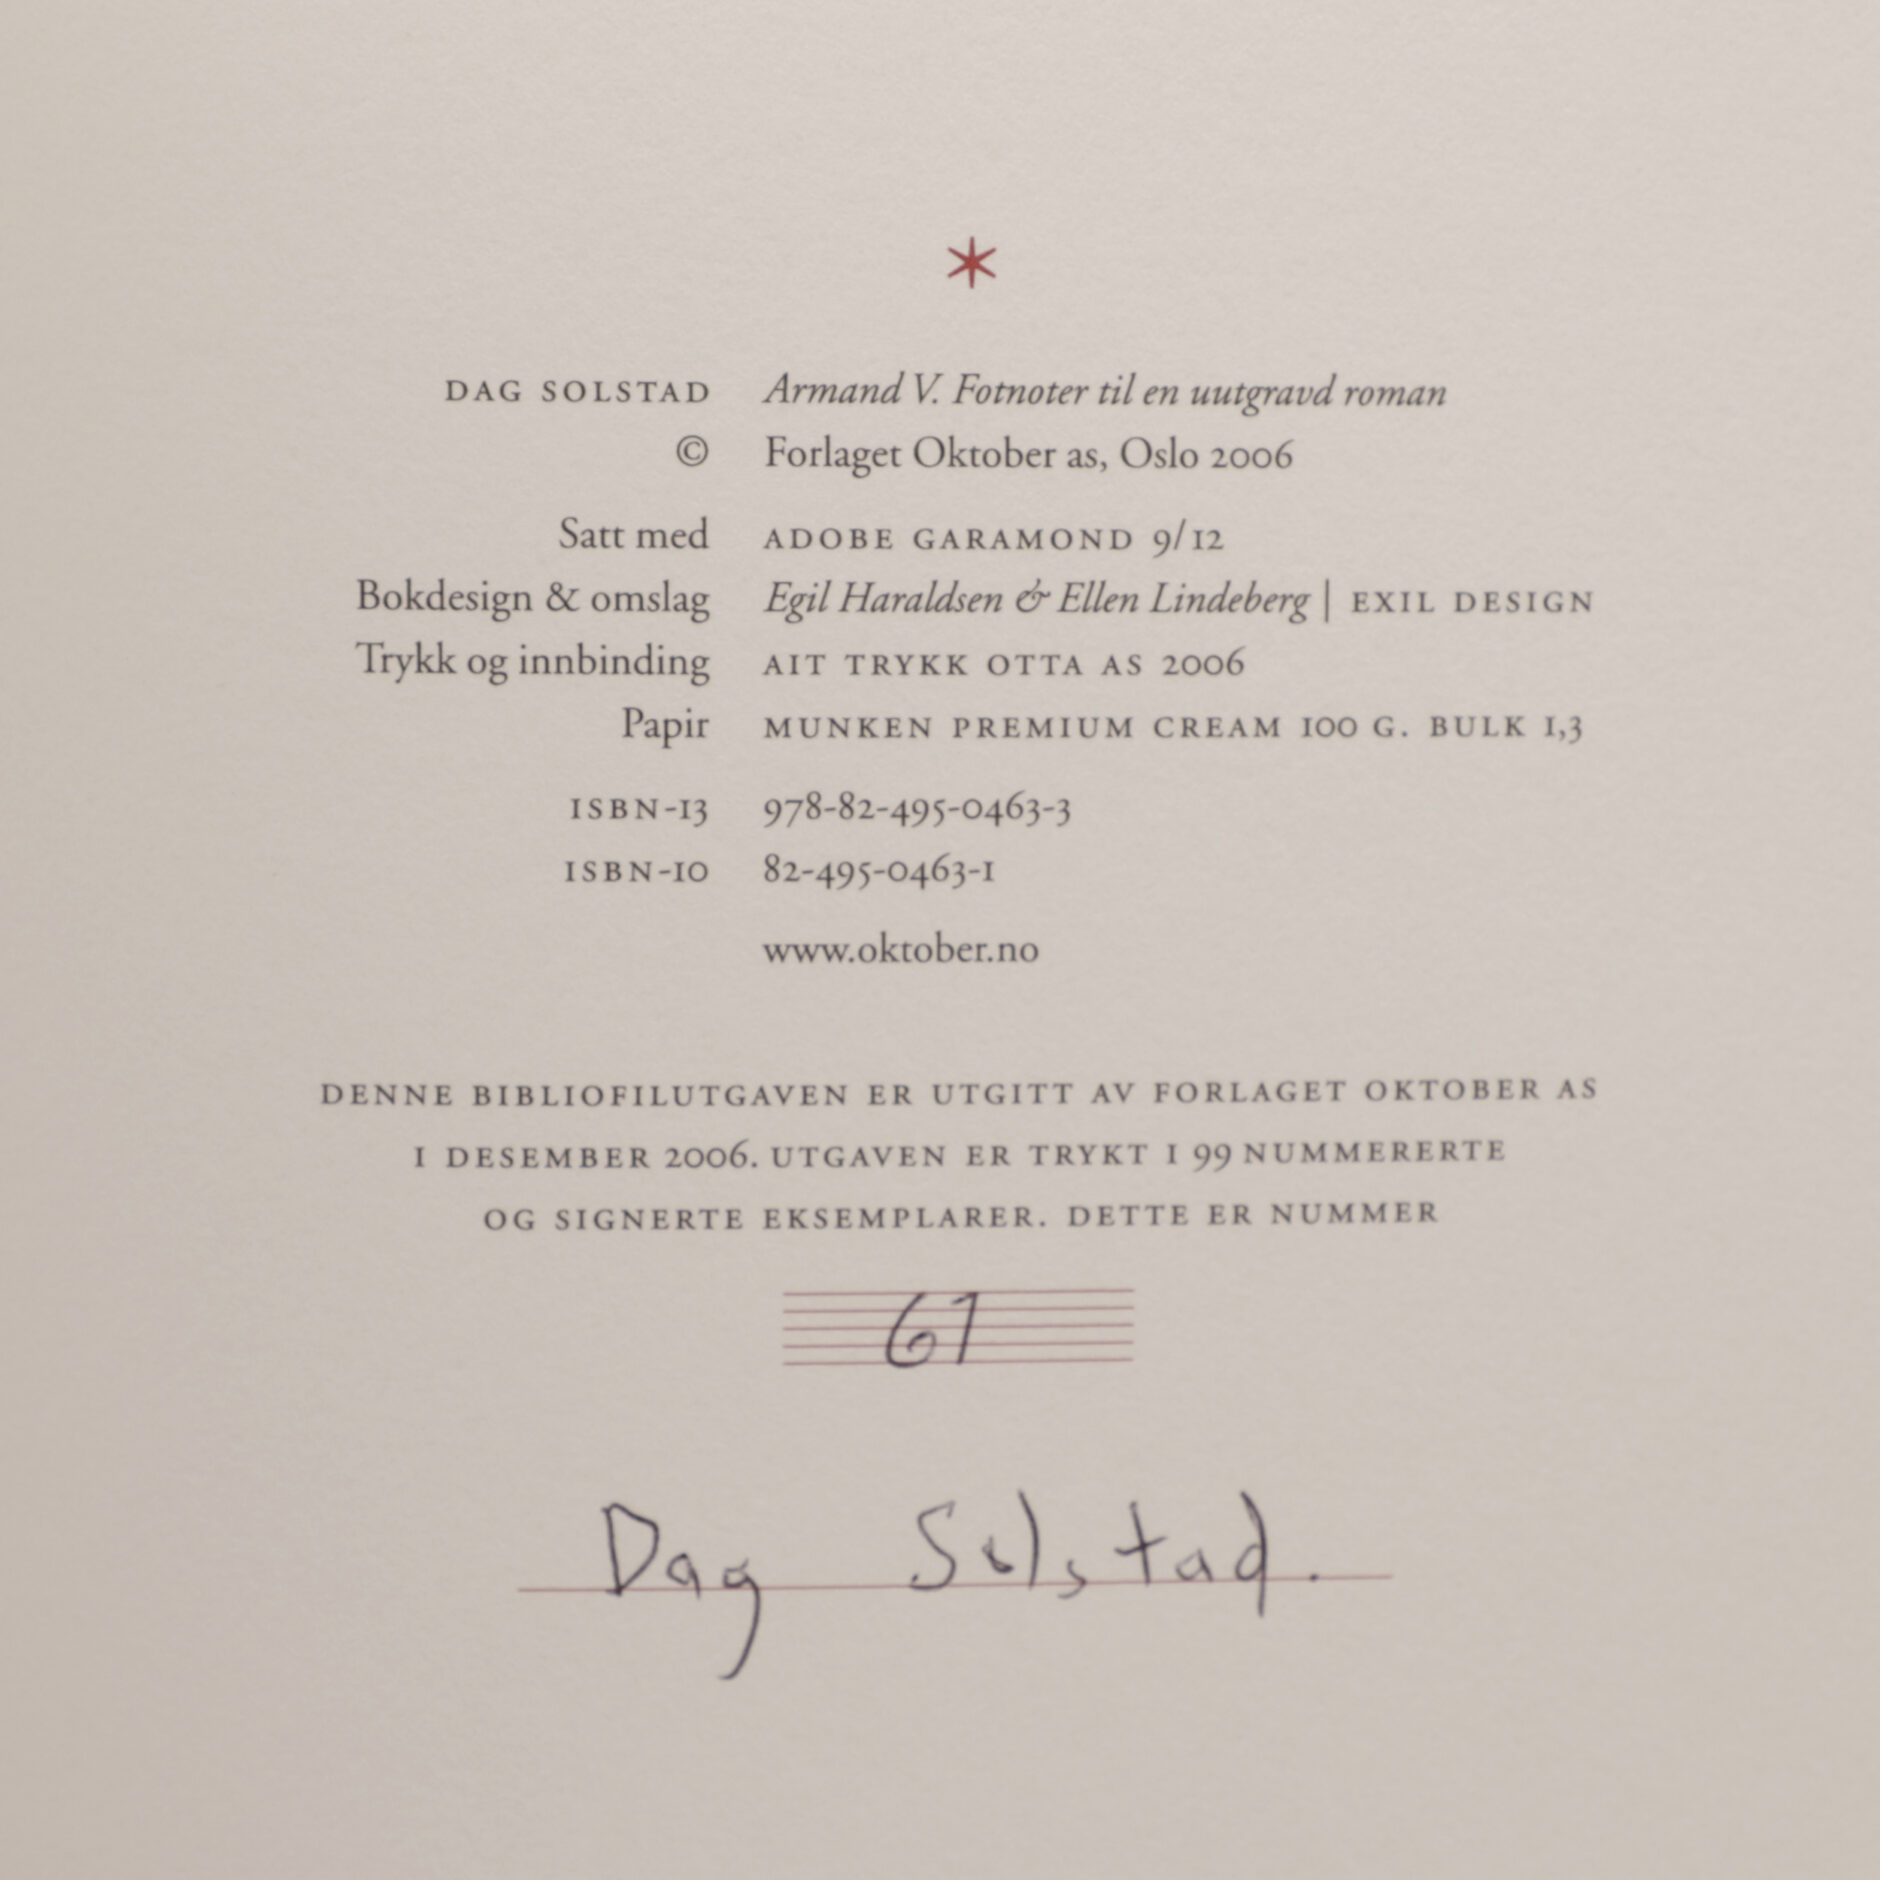 *
DAG SOLSTAD Armand V. Fotnoter til en uutgravd roman
© Forlaget Oktober as, Oslo 2006
Satt med ADOBE GARAMOND 9/12
Bokdesign & omslag Egil Haraldsen & Ellen Lindeberg | EXIL DESIGN
Trykk og innbinding AIT TRYKK OTTA AS 2006
Papir MUNKEN PREMIUM CREAM 100 G. BULK 1,3
ISBN-13 978-82-495-0463-3
ISBN-10 82-495-0463-1
www.oktober.no
DENNE BIBLIOFILUTGAVEN ER UTGITT AV FORLAGET OKTOBER AS
I DESEMBER 2006. UTGAVEN ER TRYKT I 99 NUMMERERTE
OG SIGNERTE EKSEMPLARER. DETTE ER NUMMER
61
Dag Solstad.